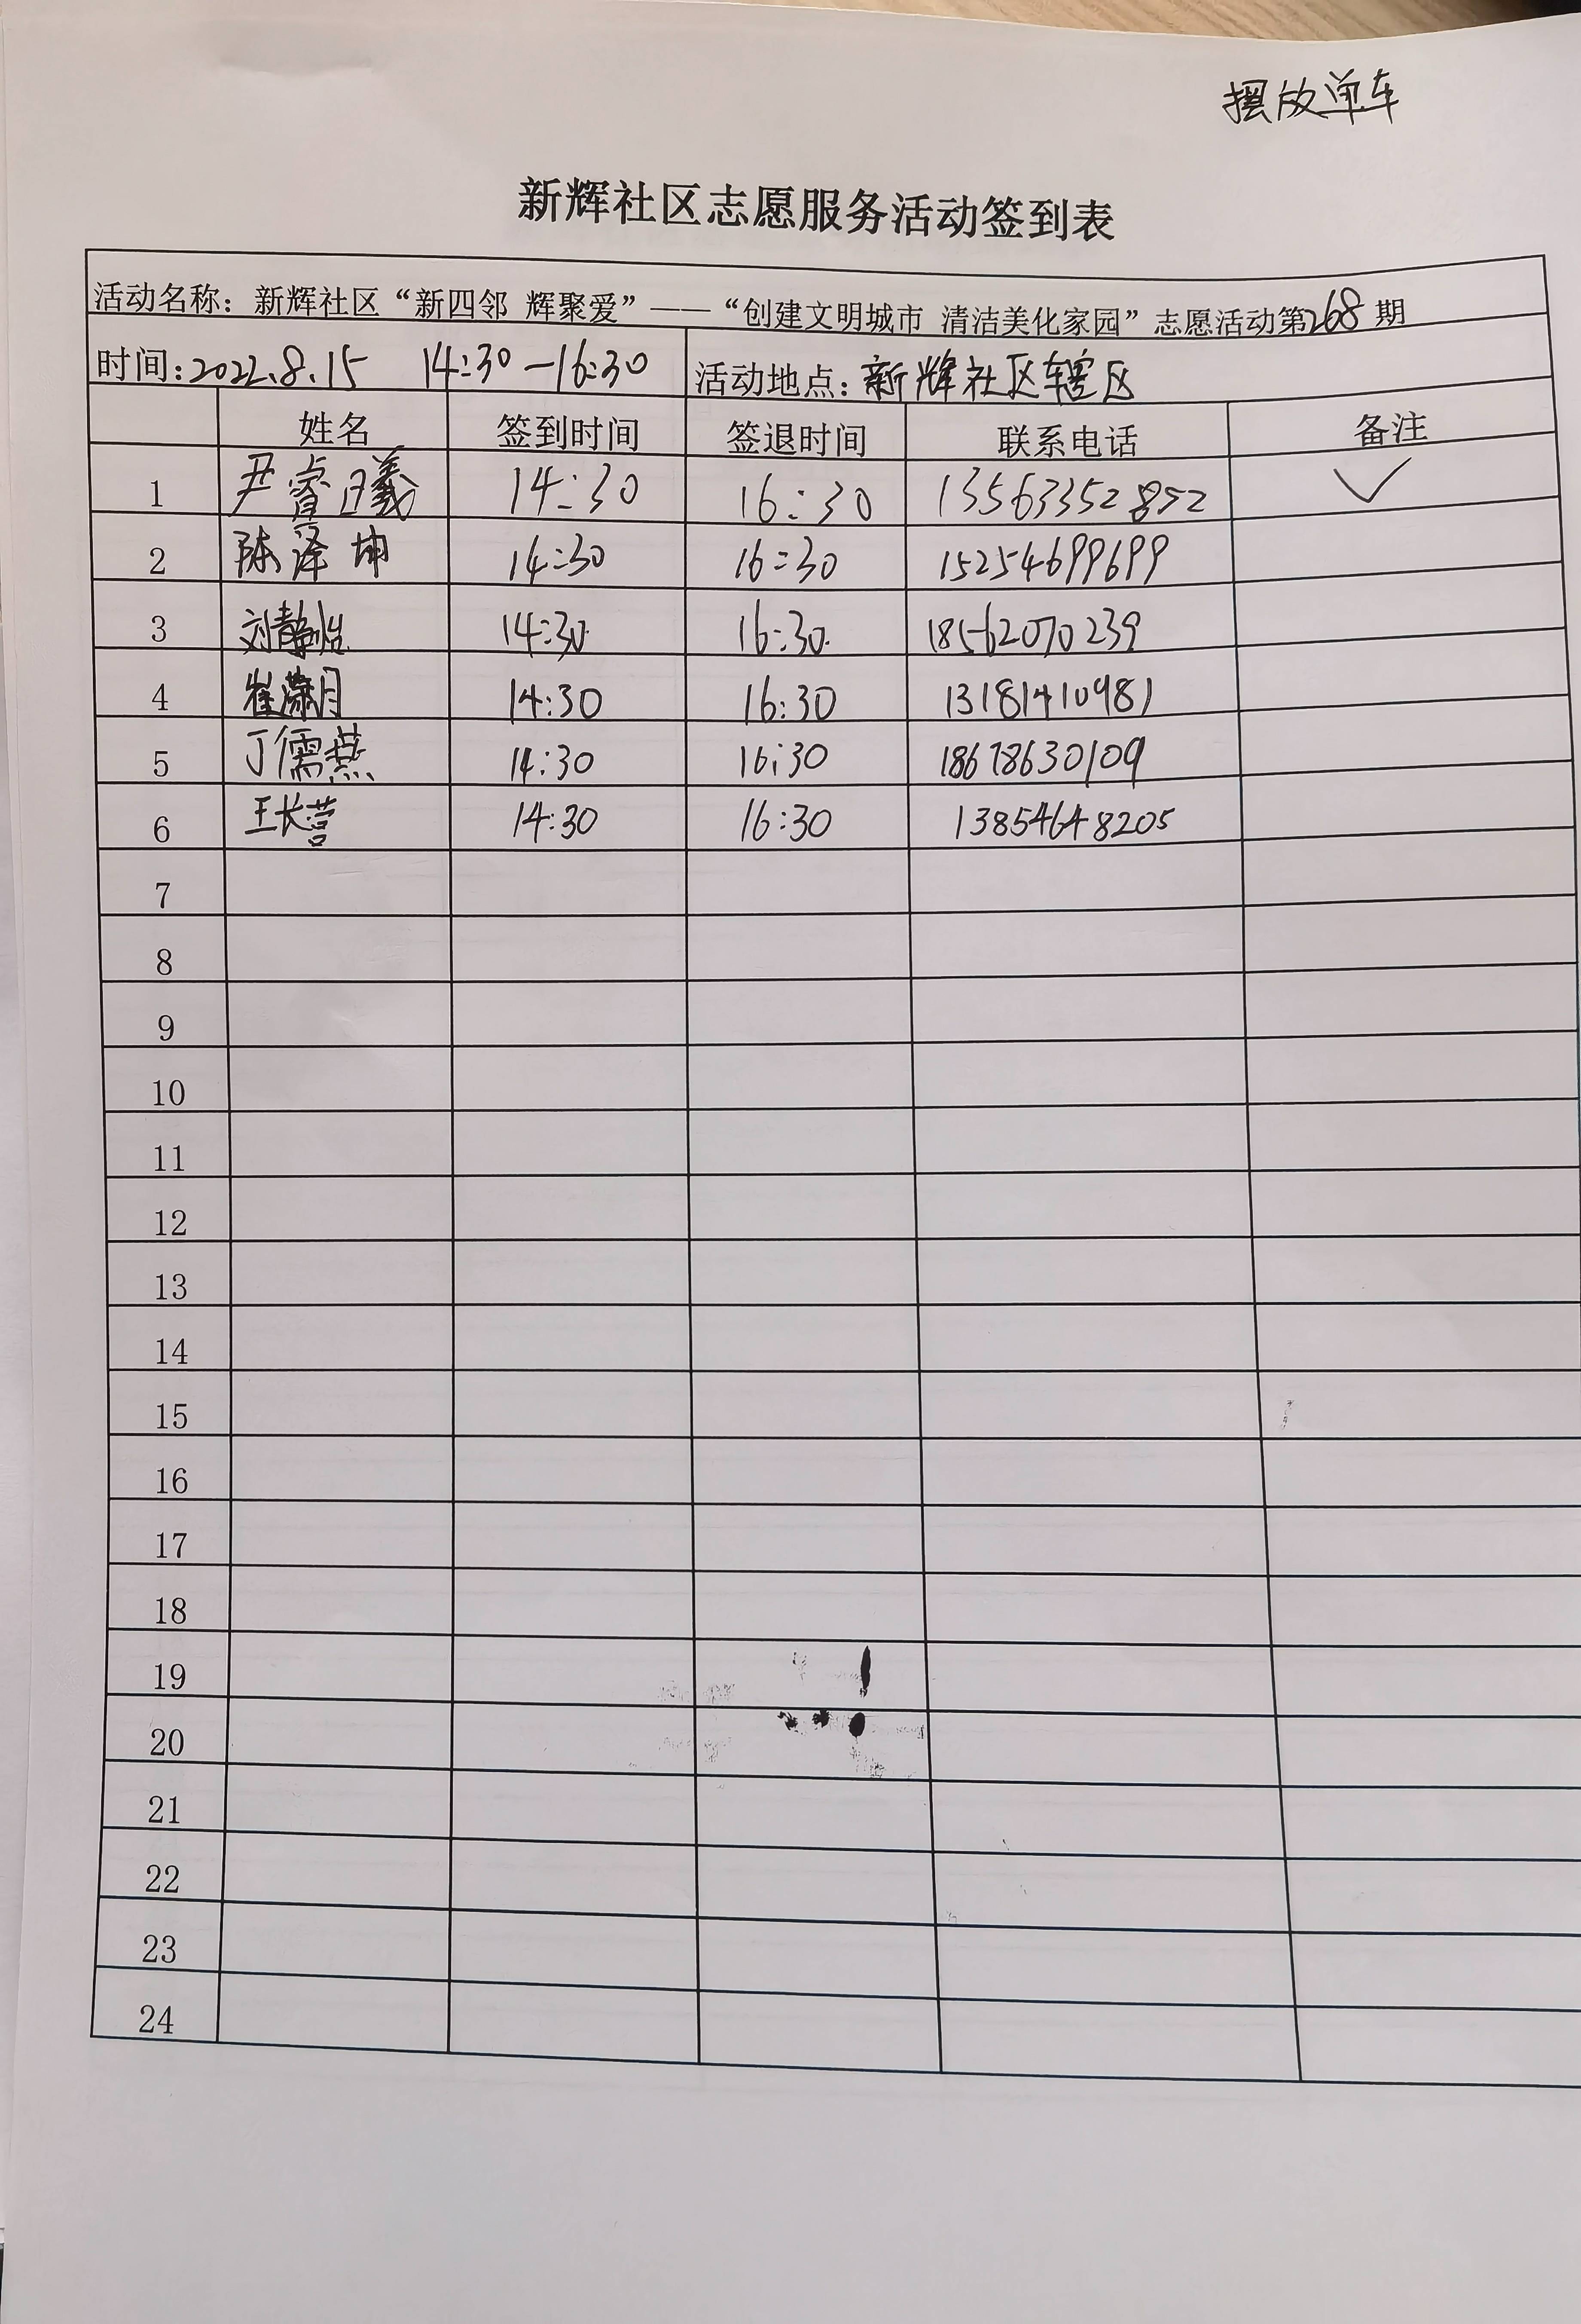 摆放单车
新辉社区志愿服务活动签到表
活动名称：新辉社区“新四邻 辉聚爱”——“创建文明城市 清洁美化家园”志愿活动第268期
时间：2022.8.15 14:30—16:30 活动地点：新辉社区辖区
姓名 签到时间 签退时间 联系电话 备注
1 尹睿曦 14:30 16:30 13563352852 ✓
2 陈泽坤 14:30 16:30 15254699699
3 刘静怡 14:30 16:30 18562070239
4 崔潇月 14:30 16:30 13181410981
5 丁儒燕 14:30 16:30 18678630109
6 王长营 14:30 16:30 13854648205
7
8
9
10
11
12
13
14
15
16
17
18
19
20
21
22
23
24